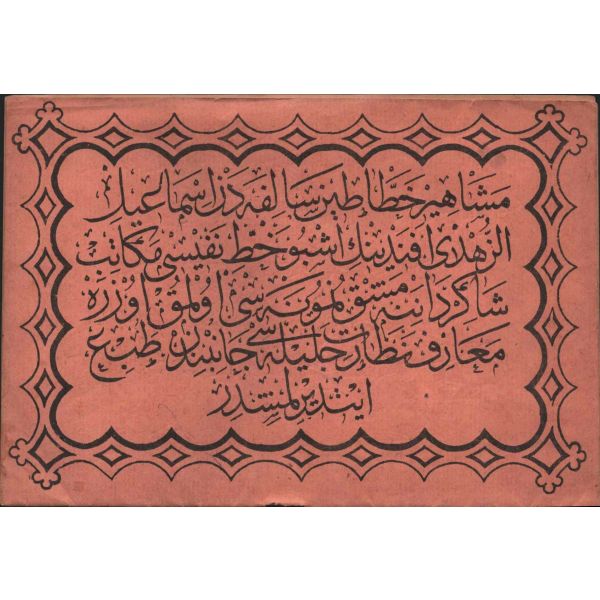 مشاهیر خطاطین سالفه‌دن اسماعیل
الزهدی افندینك اشبو خط نفیسی مکاتب
شاکرداننه مشق نمونه‌سی اولمق اوزره
معارف نظارت جلیله‌سی جانبندن طبع
ایتدیرلمشدر